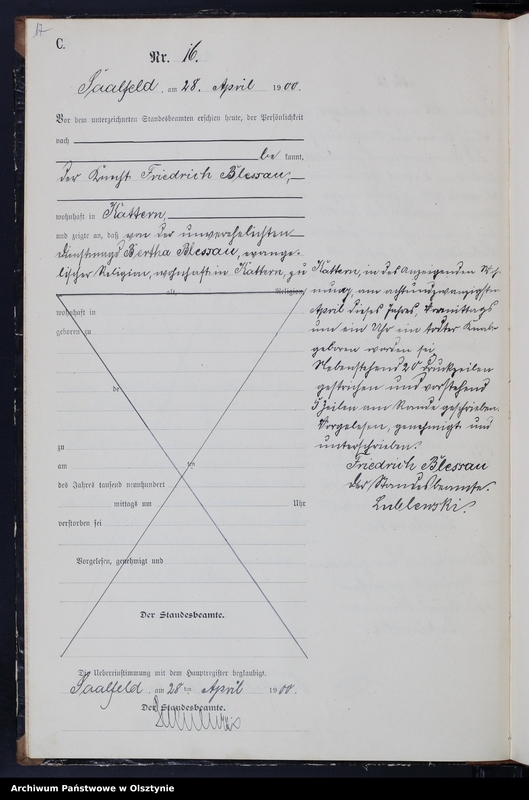 17
C.
Nr. 16.
Saalfeld, am 28. April 1900.
Vor dem unterzeichneten Standesbeamten erschien heute, der Persönlichkeit
nach
be kannt,
der Knecht Friedrich Blessau,
wohnhaft in Kattern,
und zeigte an, daß von der unverehelichten
Dienstmagd Bertha Blessau, evange-
lischer Religion, wohnhaft in Kattern, zu
alt, Religion,
wohnhaft in
geboren zu
de
zu
am ten
des Jahres tausend neunhundert
mittags um Uhr
verstorben sei
Vorgelesen, genehmigt und
Der Standesbeamte.
Kattern, in des Anzeigenden Woh-
nung, am achtundzwanzigsten
April dieses Jahres, Vormittags
um ein Uhr ein todter Knabe
geboren worden sei,
Nebenstehend 20 Druckzeilen
gestrichen und vorstehend
5 Zeilen am Rande geschrieben.
Vorgelesen, genehmigt und
unterschrieben.
Friedrich Blessau
Der Standesbeamte.
Lublewski.
Die Uebereinstimmung mit dem Hauptregister beglaubigt.
Saalfeld, am 28ten April 1900.
Der Standesbeamte.
Archiwum Państwowe w Olsztynie